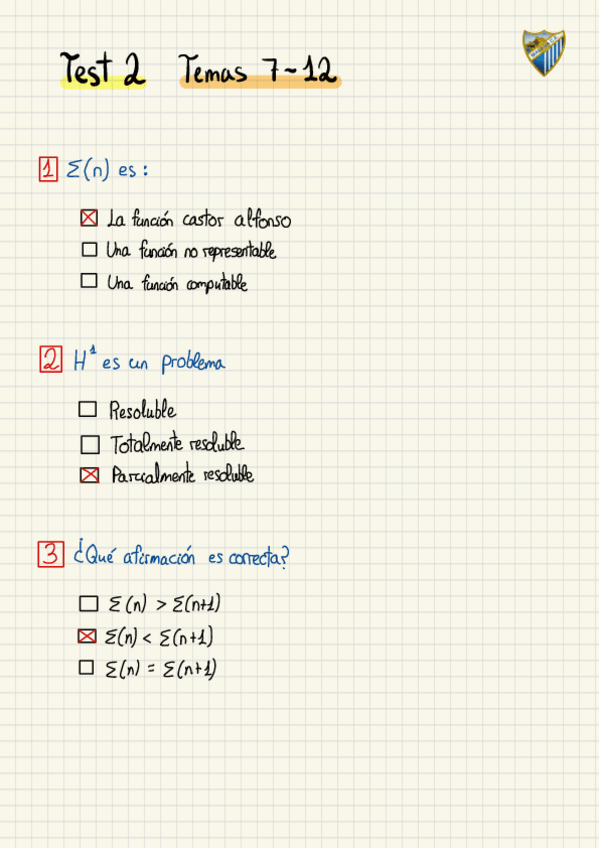 Test 2 Temas 7-12
1 Σ(n) es:
☒ La función castor alfonso
☐ Una función no representable
☐ Una función computable
2 H¹ es un problema
☐ Resoluble
☐ Totalmente resoluble
☒ Parcialmente resoluble
3 ¿Qué afirmación es correcta?
☐ Σ(n) > Σ(n+1)
☒ Σ(n) < Σ(n+1)
☐ Σ(n) = Σ(n+1)